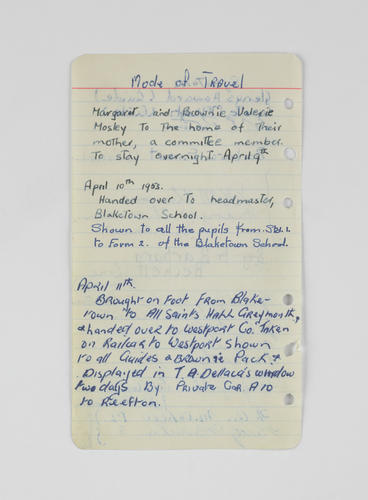 Mode of Travel
Margaret and Brownie Valerie
Mosley To the home of their
mother, a committee member.
To stay overnight April 9th
April 10th 1963.
Handed over To headmaster,
Blaketown School.
Shown to all the pupils from Std. 1.
to Form 2. of the Blaketown School.
April 11th.
Brought on Foot From Blake-
town to All Saints Hall Greymouth,
& handed over to Westport Co. Taken
on Railcar to Westport Shown
to all Guides & Brownie Pack.
Displayed in T. A. Dellaca's window
two days By Private Car. A 10
to Reefton.